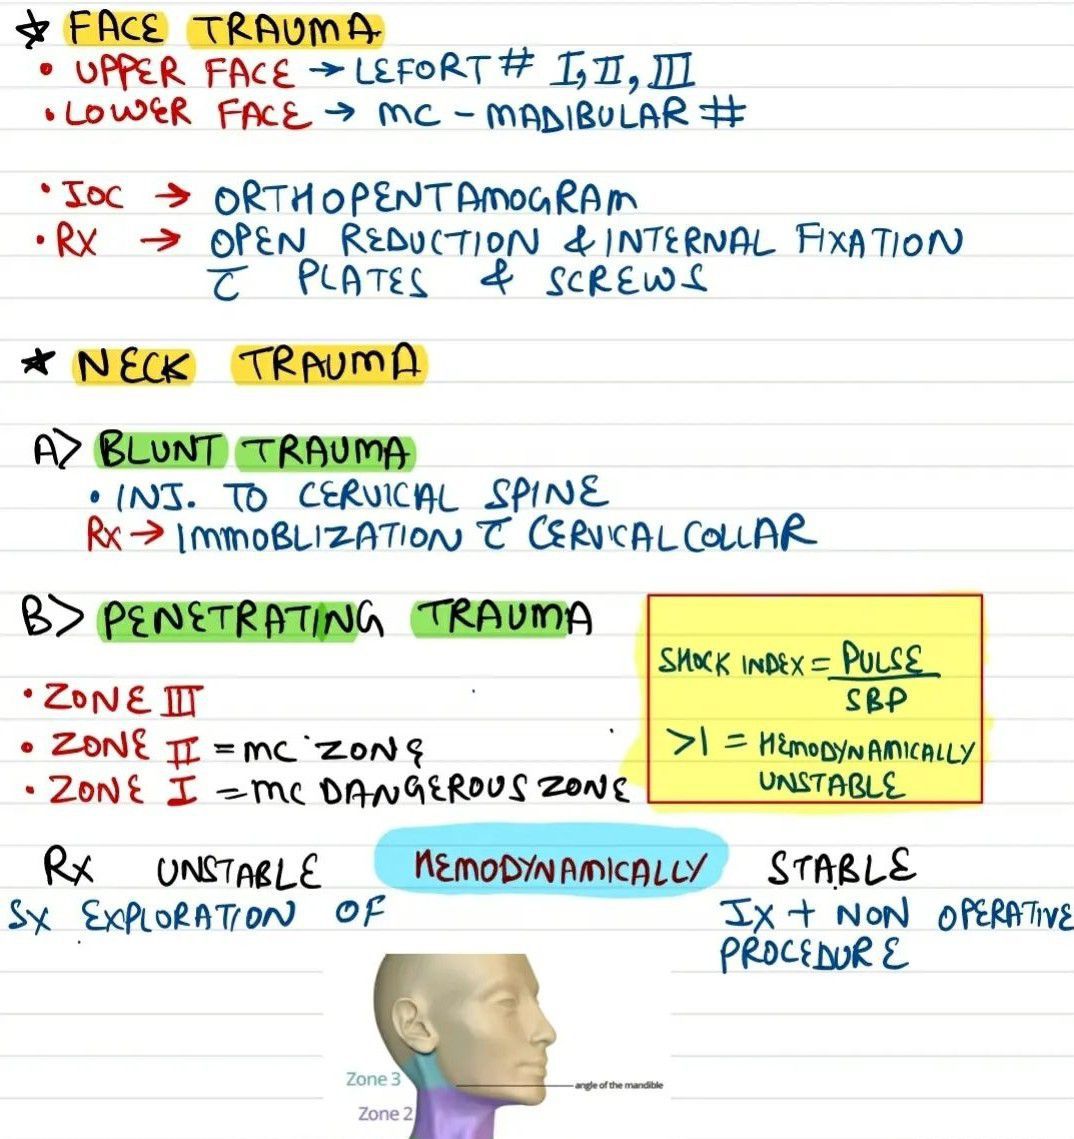 ☆ FACE TRAUMA
• UPPER FACE → LEFORT # I, II, III
• LOWER FACE → MC - MADIBULAR #
• IOC → ORTHOPENTAMOGRAM
• RX → OPEN REDUCTION & INTERNAL FIXATION
c̄ PLATES & SCREWS
★ NECK TRAUMA
A> BLUNT TRAUMA
• INJ. TO CERVICAL SPINE
Rx → IMMOBLIZATION c̄ CERVICAL COLLAR
B> PENETRATING TRAUMA
• ZONE III
• ZONE II = MC ZONE
• ZONE I = MC DANGEROUS ZONE
SHOCK INDEX = PULSE
SBP
>1 = HEMODYNAMICALLY
UNSTABLE
Rx UNSTABLE HEMODYNAMICALLY STABLE
SX EXPLORATION OF
IX + NON OPERATIVE
PROCEDURE
Zone 3
angle of the mandible
Zone 2